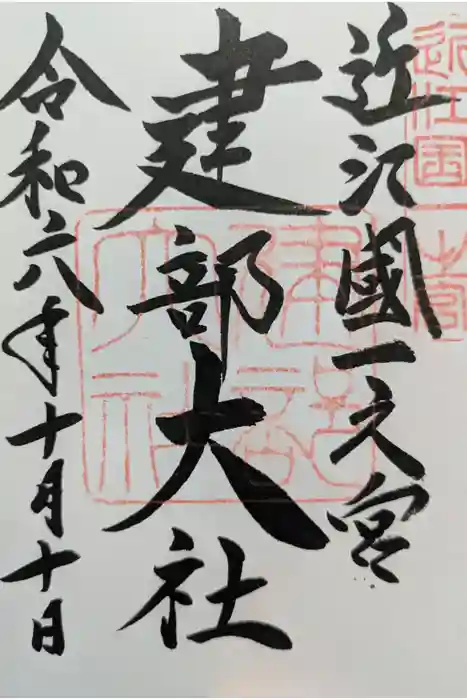 近江國一之宮
建部大社
令和六年十月十日
近江国一之宮
建部大社